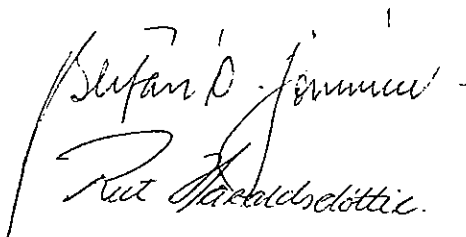 Stefán D. Jónsson
Rut Haraldsdóttir.